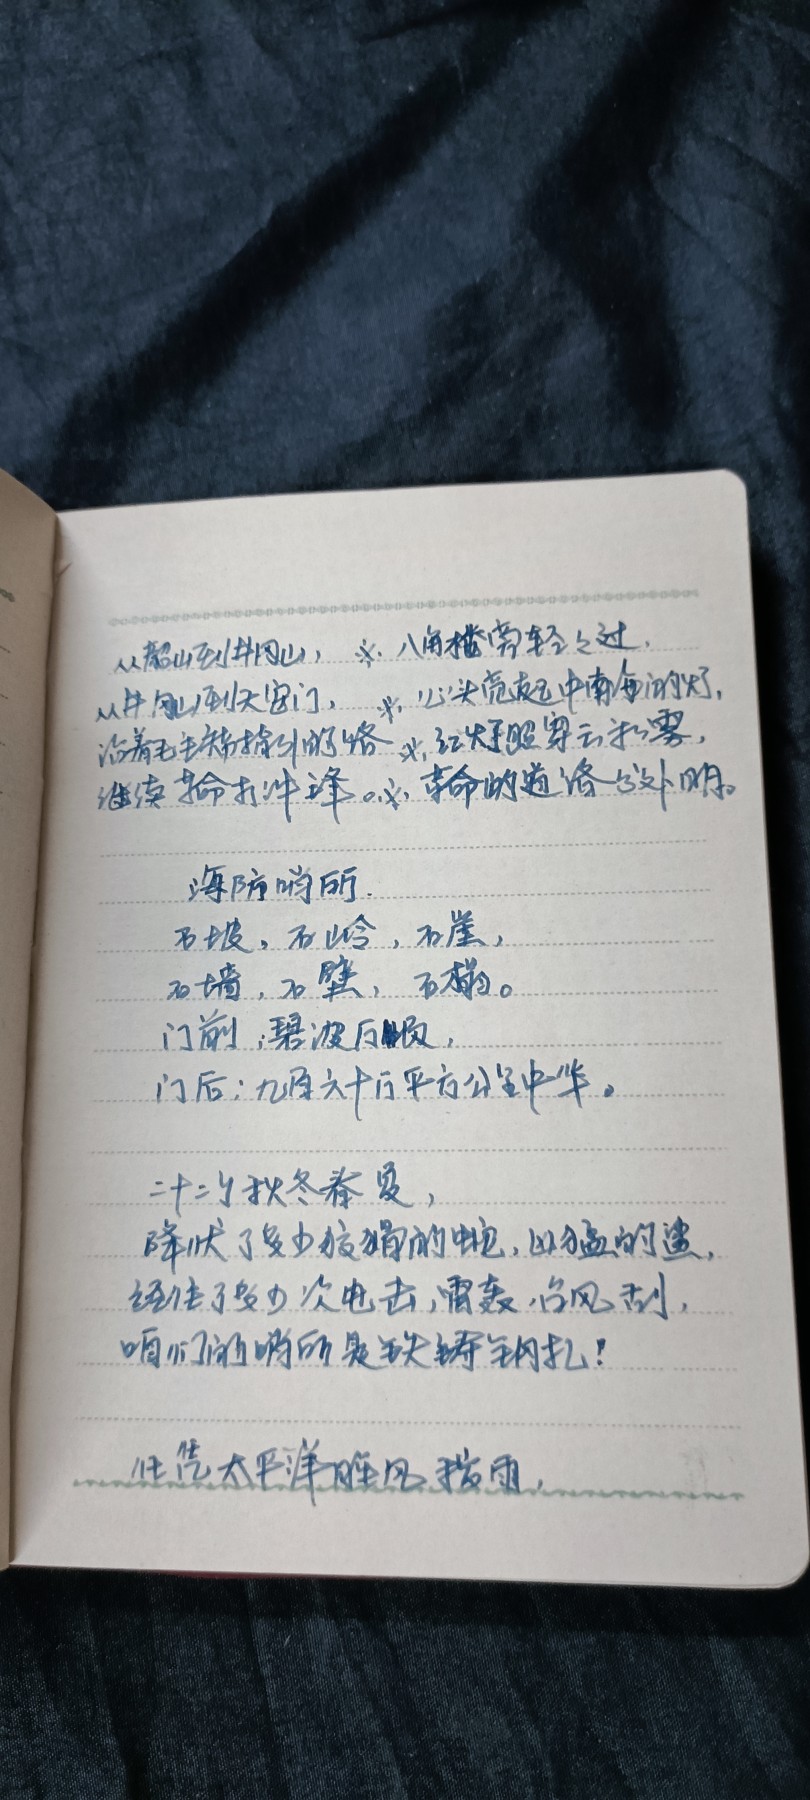 从韶山到井冈山， ※. 八角楼旁轻々过，
从井冈山到天安门， ※. 心头亮起中南海的灯，
沿着毛主席指引的路 ※. 红灯照穿云和雾，
继续革命打冲锋。※. 革命的道路分外明。
海防哨所.
石坡，石岭，石崖，
石墙，石壁，石榻。
门前；碧波万顷，
门后：九百六十万平方公里中华。
二十二个秋冬春夏，
降伏了多少狡猾的蛇，凶猛的鲨，
经住了多少次电击，雷轰，台风刮，
咱们的哨所是铁铸钢扎！
任凭太平洋腥风拨雨，